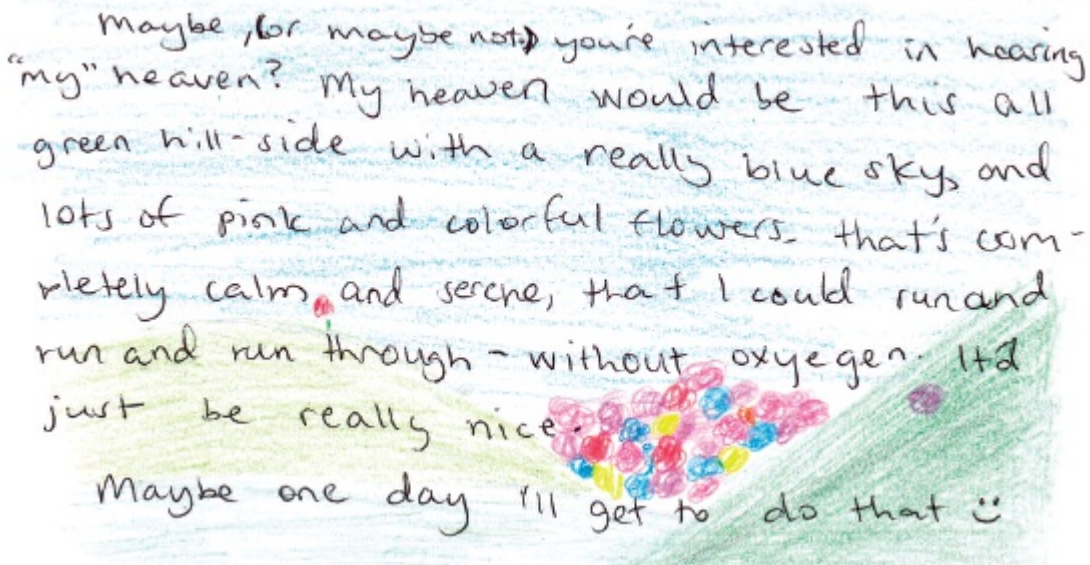 Maybe, (or maybe not) you're interested in hearing
"my" heaven? My heaven would be this all
green hill-side with a really blue sky, and
lots of pink and colorful flowers - that's com-
pletely calm and serene, that I could run and
run and run through - without oxyegen. It'd
just be really nice.
Maybe one day I'll get to do that :)